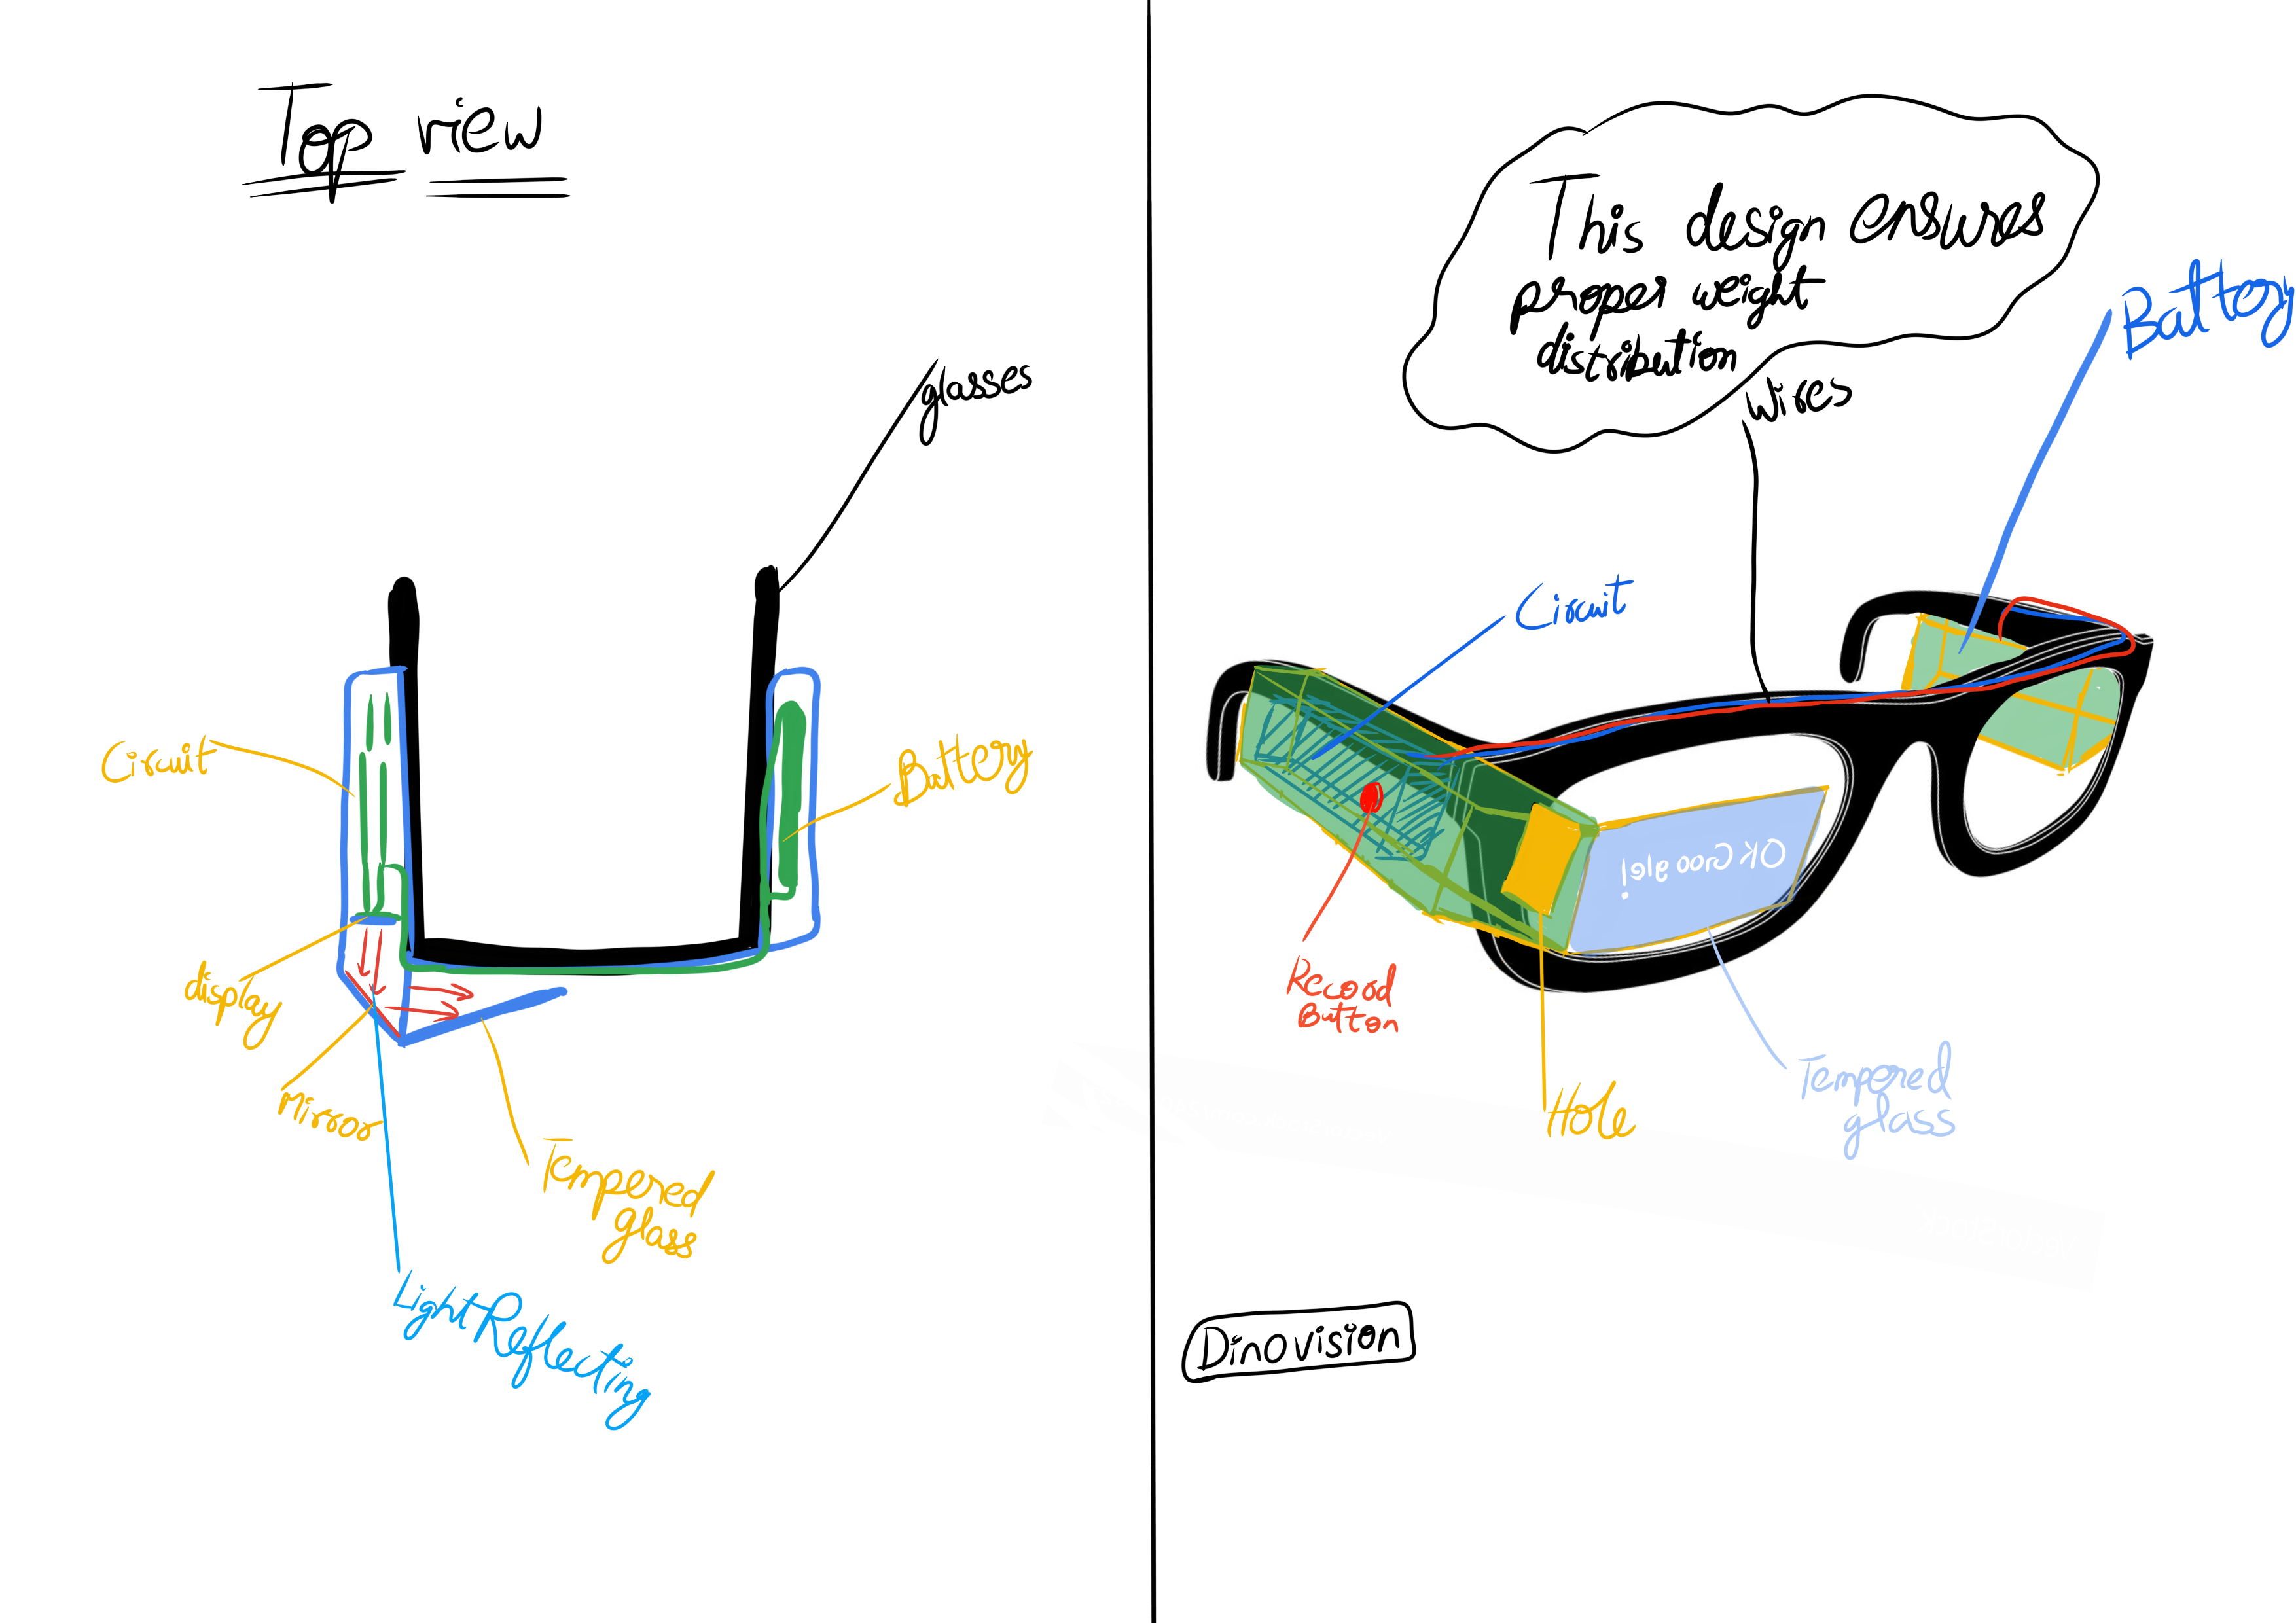 Top view
glasses
Circuit
Battery
display
Mirror
Tempered
glass
Light Reflecting
This design ensures
proper weight
distribution
Wires
Battery
Circuit
OK Google!
Record
Button
Hole
Tempered
glass
Dinovision